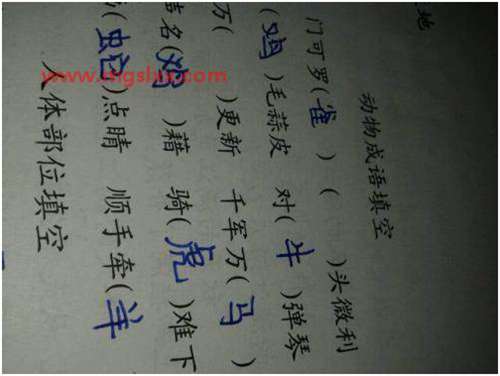 地
动物成语填空
门可罗(雀) ( )头微利
(鸡)毛蒜皮 对(牛)弹琴
万( )更新 千军万(马)
名(鸡)藉 骑(虎)难下
(蛇)点睛 顺手牵(羊)
人体部位填空